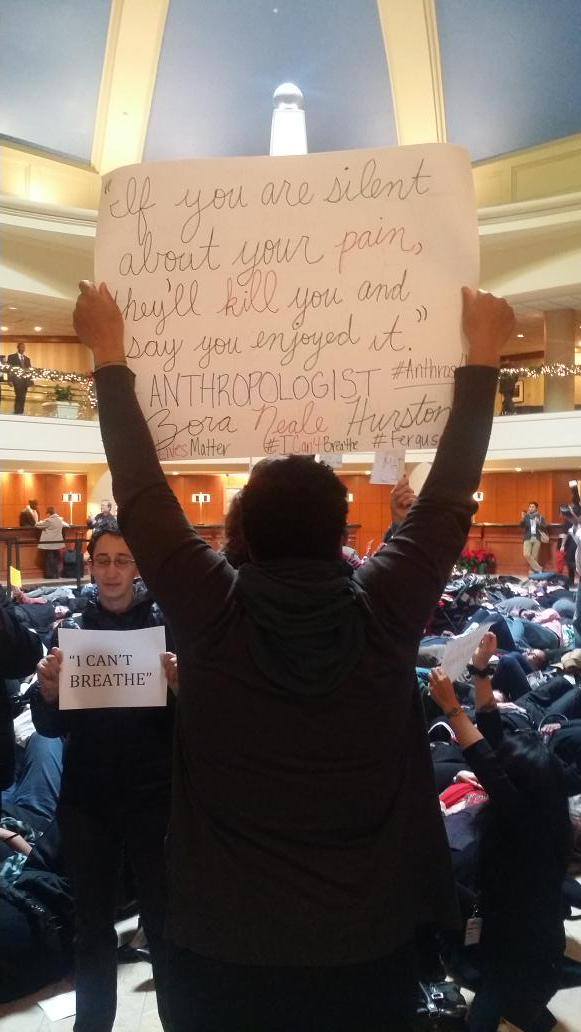 "If you are silent
about your pain,
they'll kill you and
say you enjoyed it."
ANTHROPOLOGIST #Anthro
Zora Neale Hurston
Lives Matter #ICan'tBreathe #Fergus
"I CAN'T
BREATHE"